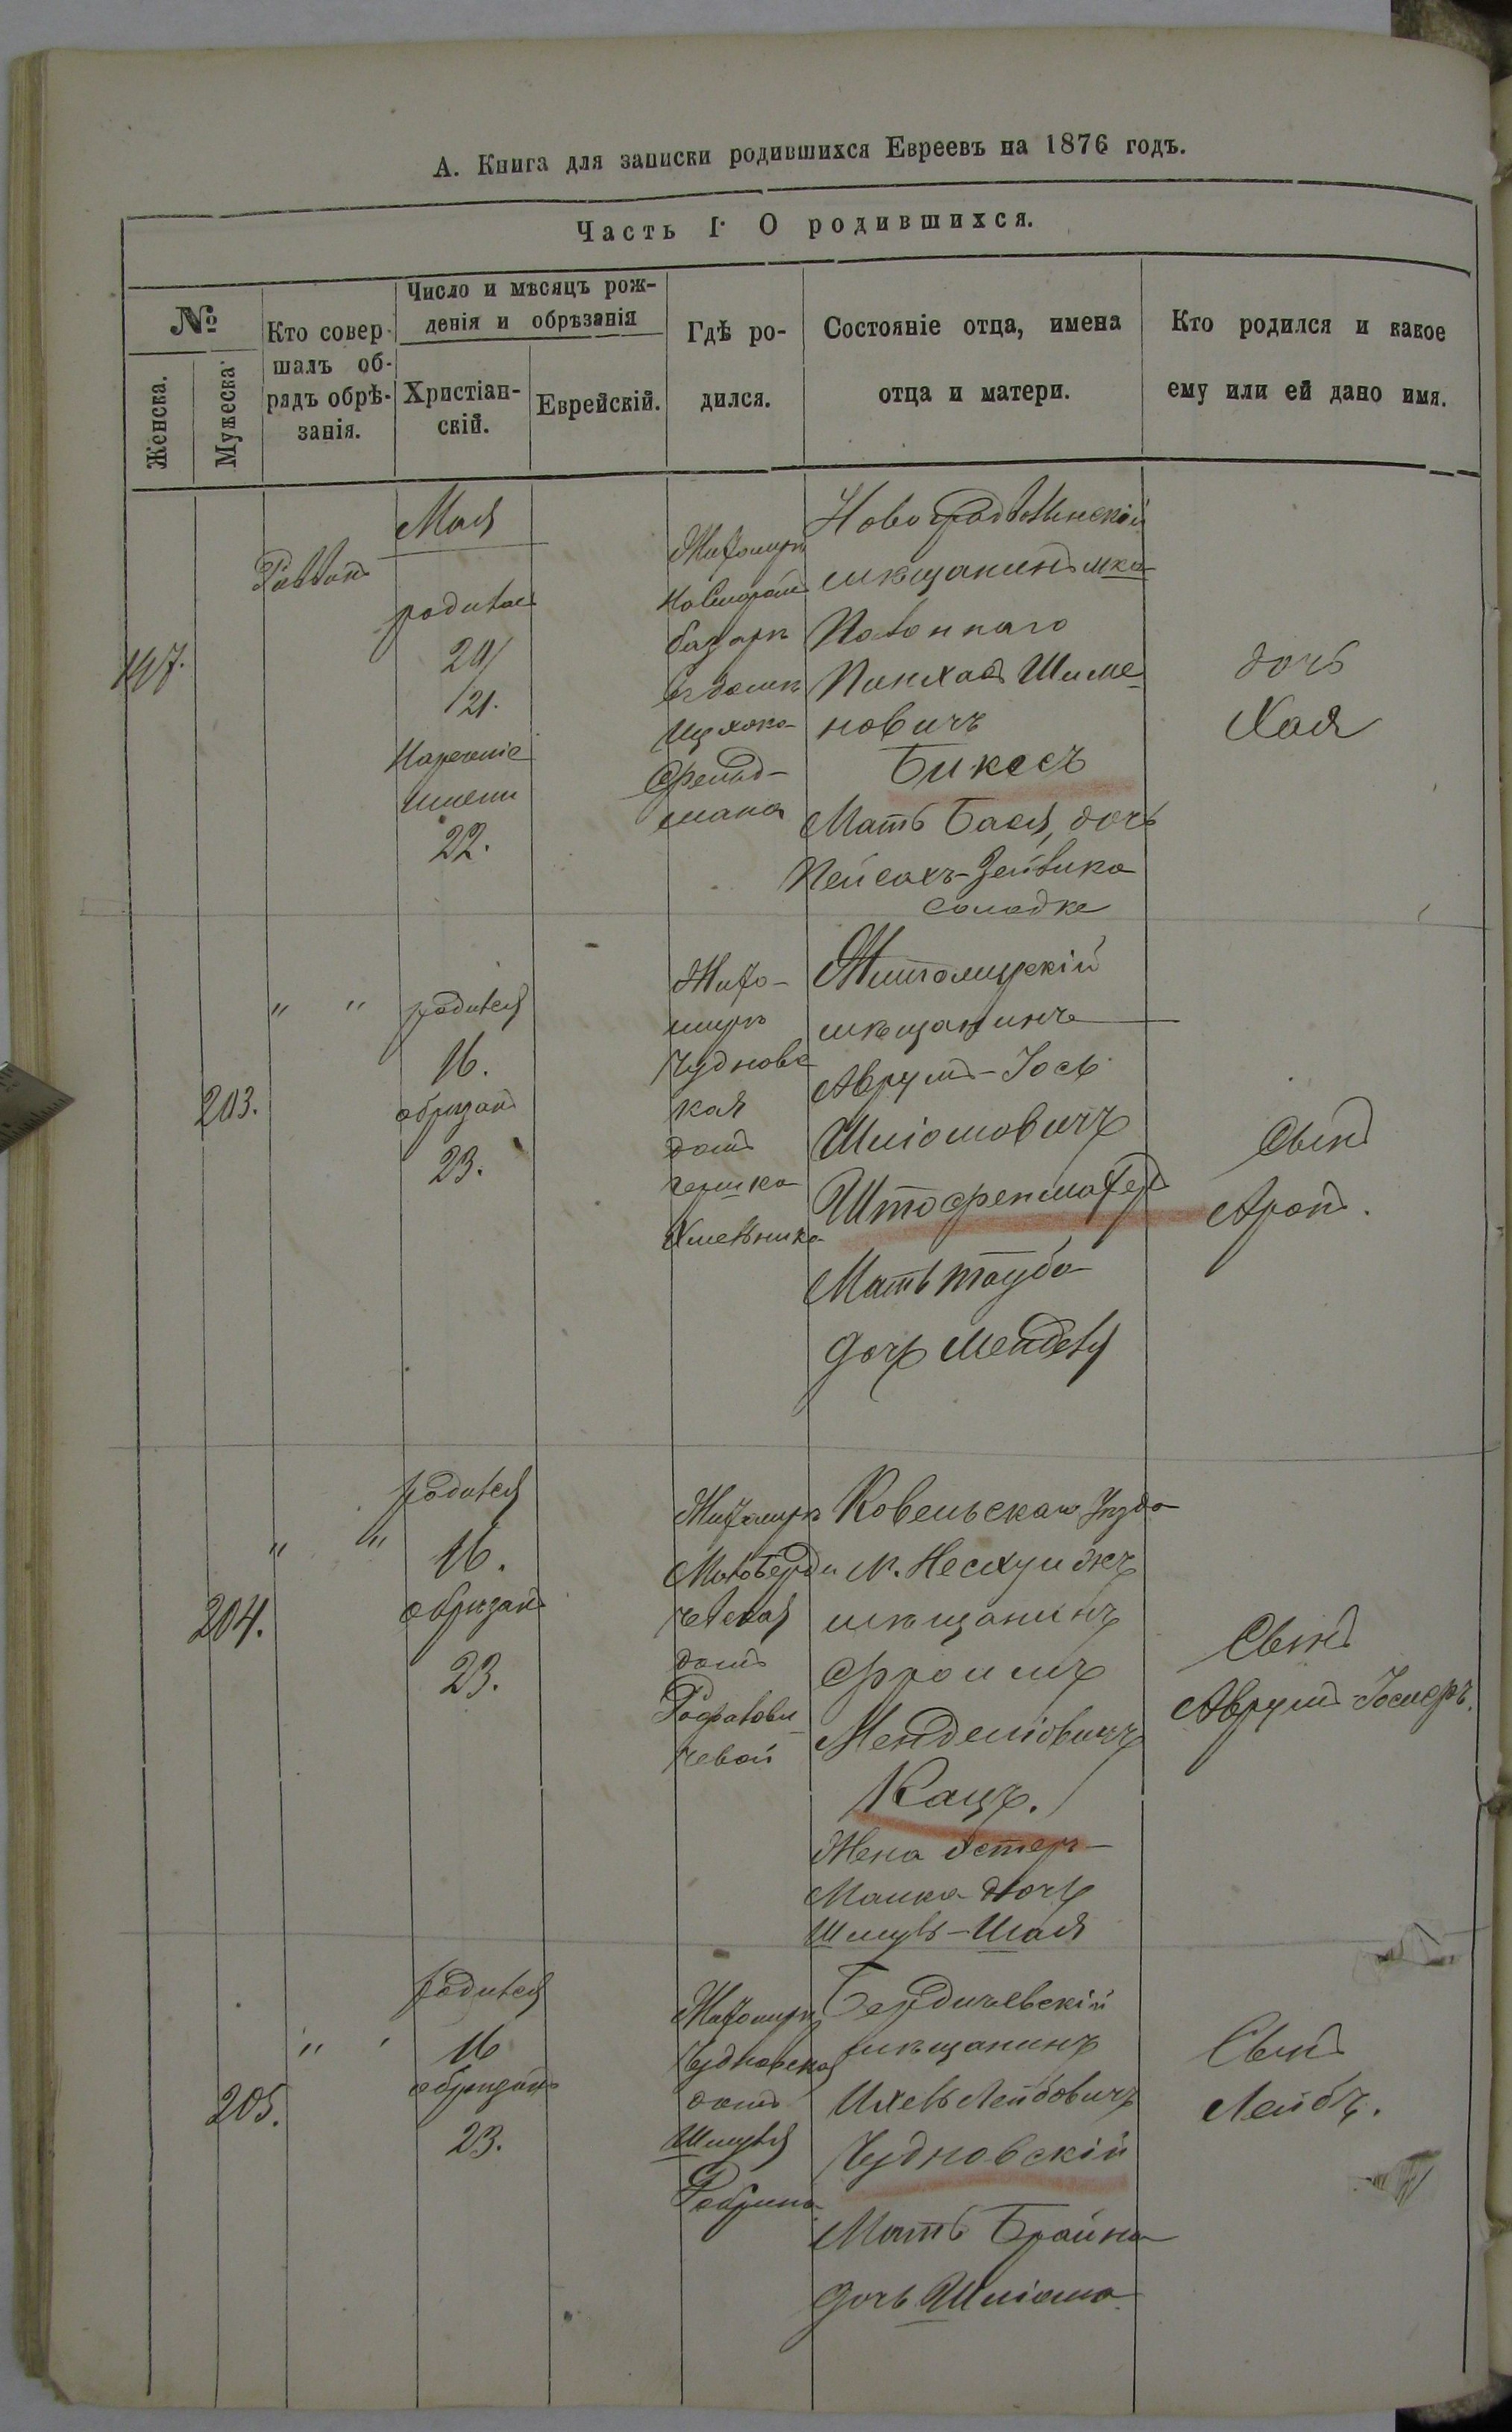 А. Книга для записки родившихся Евреевъ на 1876 годъ.
Часть I. О родившихся.
№
Женска.
Мужеска.
Кто совер-
шалъ об-
рядъ обрѣ-
занія.
Число и мѣсяцъ рож-
денія и обрѣзанія
Христіан-
скій.
Еврейскій.
Гдѣ ро-
дился.
Состояніе отца, имена
отца и матери.
Кто родился и какое
ему или ей дано имя.
Мая
родилась
21.
Нареченіе
имени
22.
Житомирѣ
базарѣ
въ домѣ
Ицхока
Фельд-
мана
Новоградволынскій
мѣщанинъ мка
Полоннаго
Пинхасъ Шиме-
новичъ
Биксъ
Мать Бася, дочь
Пейсахъ-Зейвика
дочь
Хая
203.
" "
родился
16.
обрѣзанъ
23.
Жито-
мирѣ
Чудновс
кая
домъ
Хмельника
Житомирскій
мѣщанинъ
Аврумъ-Іось
Шліомовичъ
Штофенмахеръ
Мать Тауба
дочь Менделя
Сынъ
Аронъ.
204.
" "
родился
16.
обрѣзанъ
23.
Житомирѣ
Малобердич
чевская
домъ
Рафалови-
чевой
Ковельскаго Уѣзда
м. Несхуижъ
мѣщанинъ
Фроимъ
Менделіовичъ
Кацъ.
Жена Эстеръ-
Малка дочь
Шмуль-Шая
Сынъ
Аврумъ Іосифъ.
205.
родился
16
обрѣзанъ
23.
Житомирѣ
Чудновская
домъ
Шмуля
Бердичевскій
мѣщанинъ
Ихель Лейбовичъ
Чудновскій
Мать Брайна
дочь Шліома
Сынъ
Лейбъ.